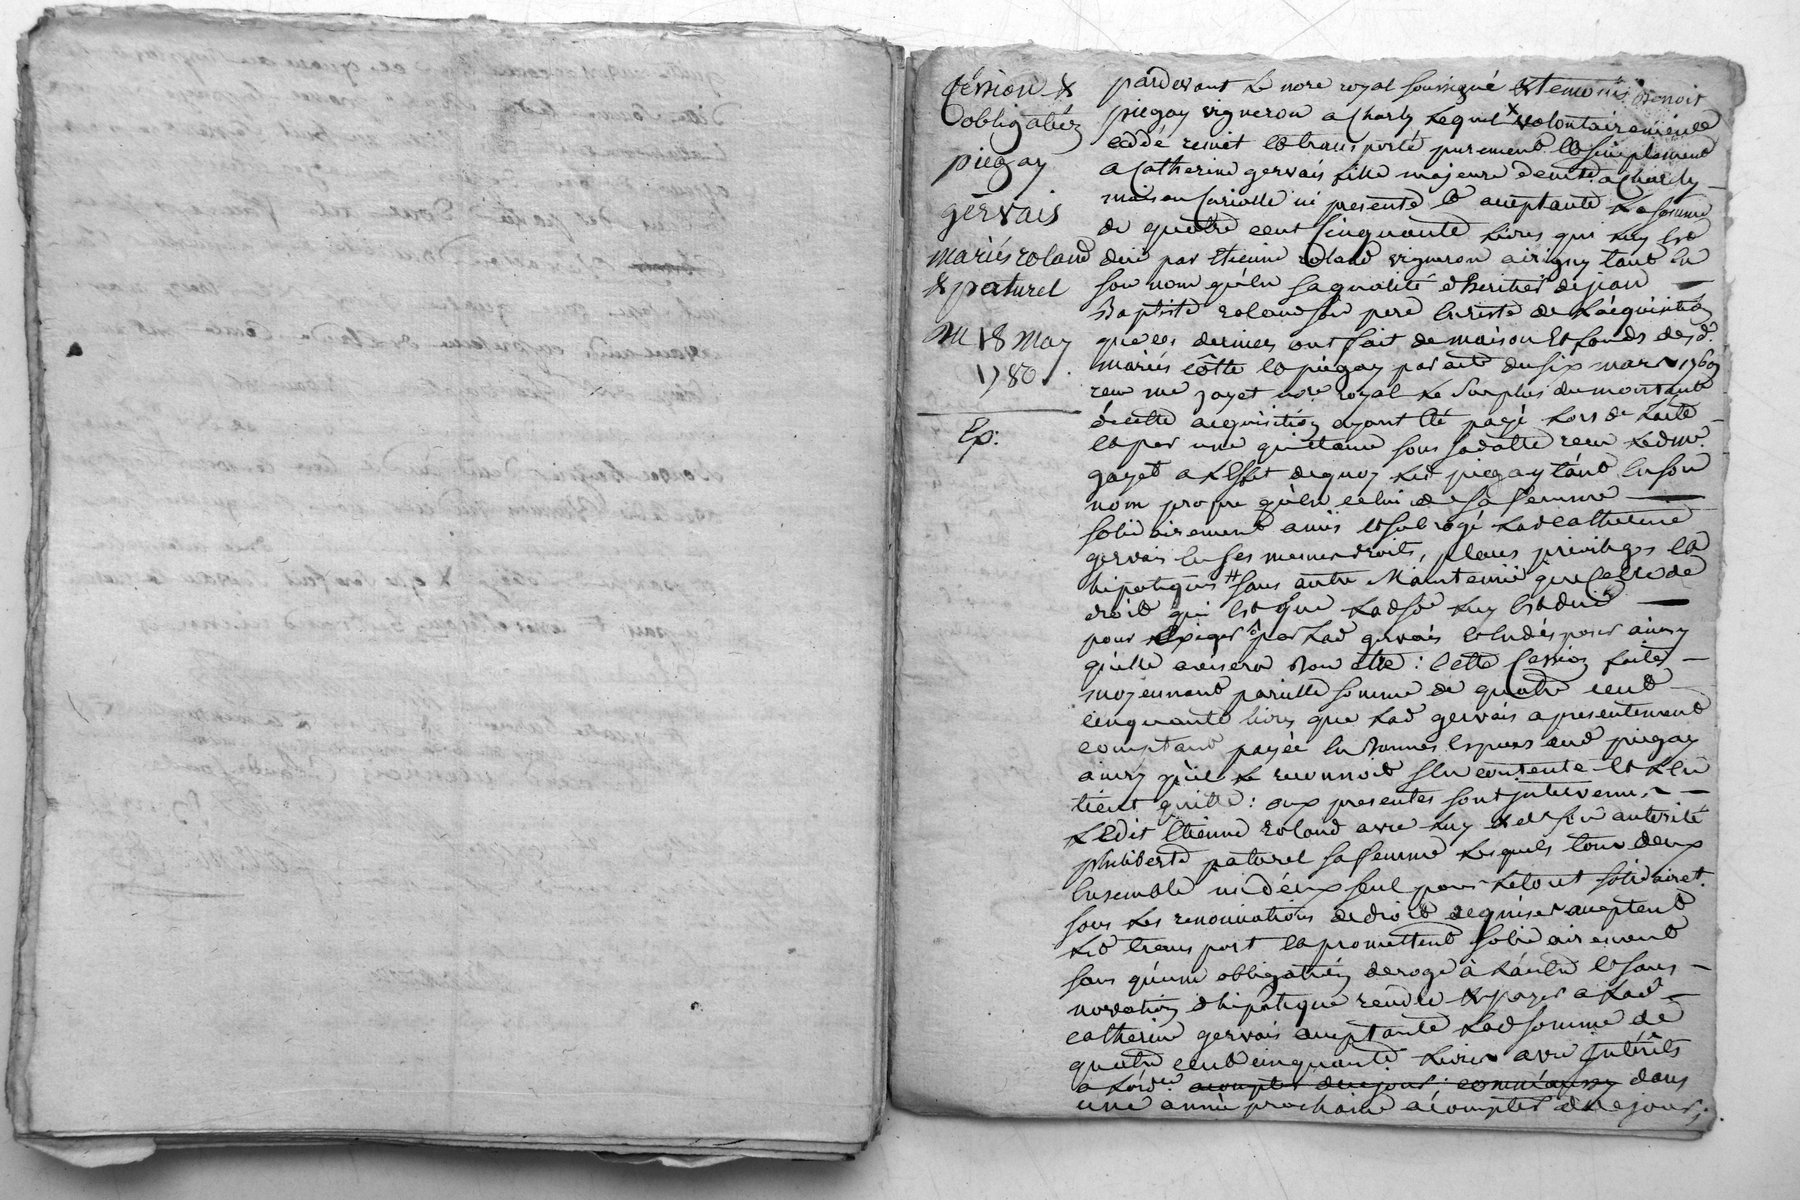 Cession &
obligatiõn
piegay
gervais
mariés roland
& paturel
Du 18 may
1780.
Ex:
pardevant Le nore royal soussigné & temoins Benoit
piegay vigneron a Charly Lequel x volontairement
cedde remet et transporte purement et simplement
a Catherine gervais fille majeure demte. a Charly
maison Cariolle ici presente et aceptante La somme
de quatre cent Cinquante Livres qui luy est
deüe par Etienne roland vigneron a irigny tant en
son nom qu'en sa qualité d'heritier de jean
Baptiste roland son pere en reste de L'acquisitiõn
que ces derniers ont fait de maison et fonds desd.
mariés côtte et piegay par acte du six mars 176
reçu me gayet nore royal Le surplus du montant
de cette acquisitiõn ayant été payé Lors de L'acte
et par une quittance sous sa datte reçu Led me.
gayet a L'effet de quoy Led piegay tant en son
nom propre qu'en celui de sa femme
solidairement a mis et subrogé Lad catherine
gervais en ses mesmes droits, places privileges et
hipoteques # sans autre Maintenüe que celle de
droit qui est que Lad so͠e luy est duë
pour exiger par Lad gervais et en disposer ainsy
qu'elle avisera Bon etre : Cette Cession faite
moyennant pareille somme de quatre cent
cinquante livres que Lad gervais a presentement
comptant payée en Bonnes especes aud piegay
ainsy qu'il Le reconnoit s'en contente et L'en
tient quitte : aux presentes sont intervenus
Ledit Etienne roland avec luy & de son autorité
philiberte paturel sa femme Lesquels tous deux
Ensemble un d'eux seul pour Le tout solidairet.
sous Les renonciations de droit requises aceptent
Led transport et promettent solidairement
sans qu'une obligatiõn deroge à L'autre et sans
novatiõn d'hipoteque rendre & payer a Lad
catherine gervais aceptante Lad somme de
quatre cent cinquante Livres avec Intérêts
a L'ordre. a compter de ce jour : comme aussy dans
une année prochaine a compter de ce jour ;